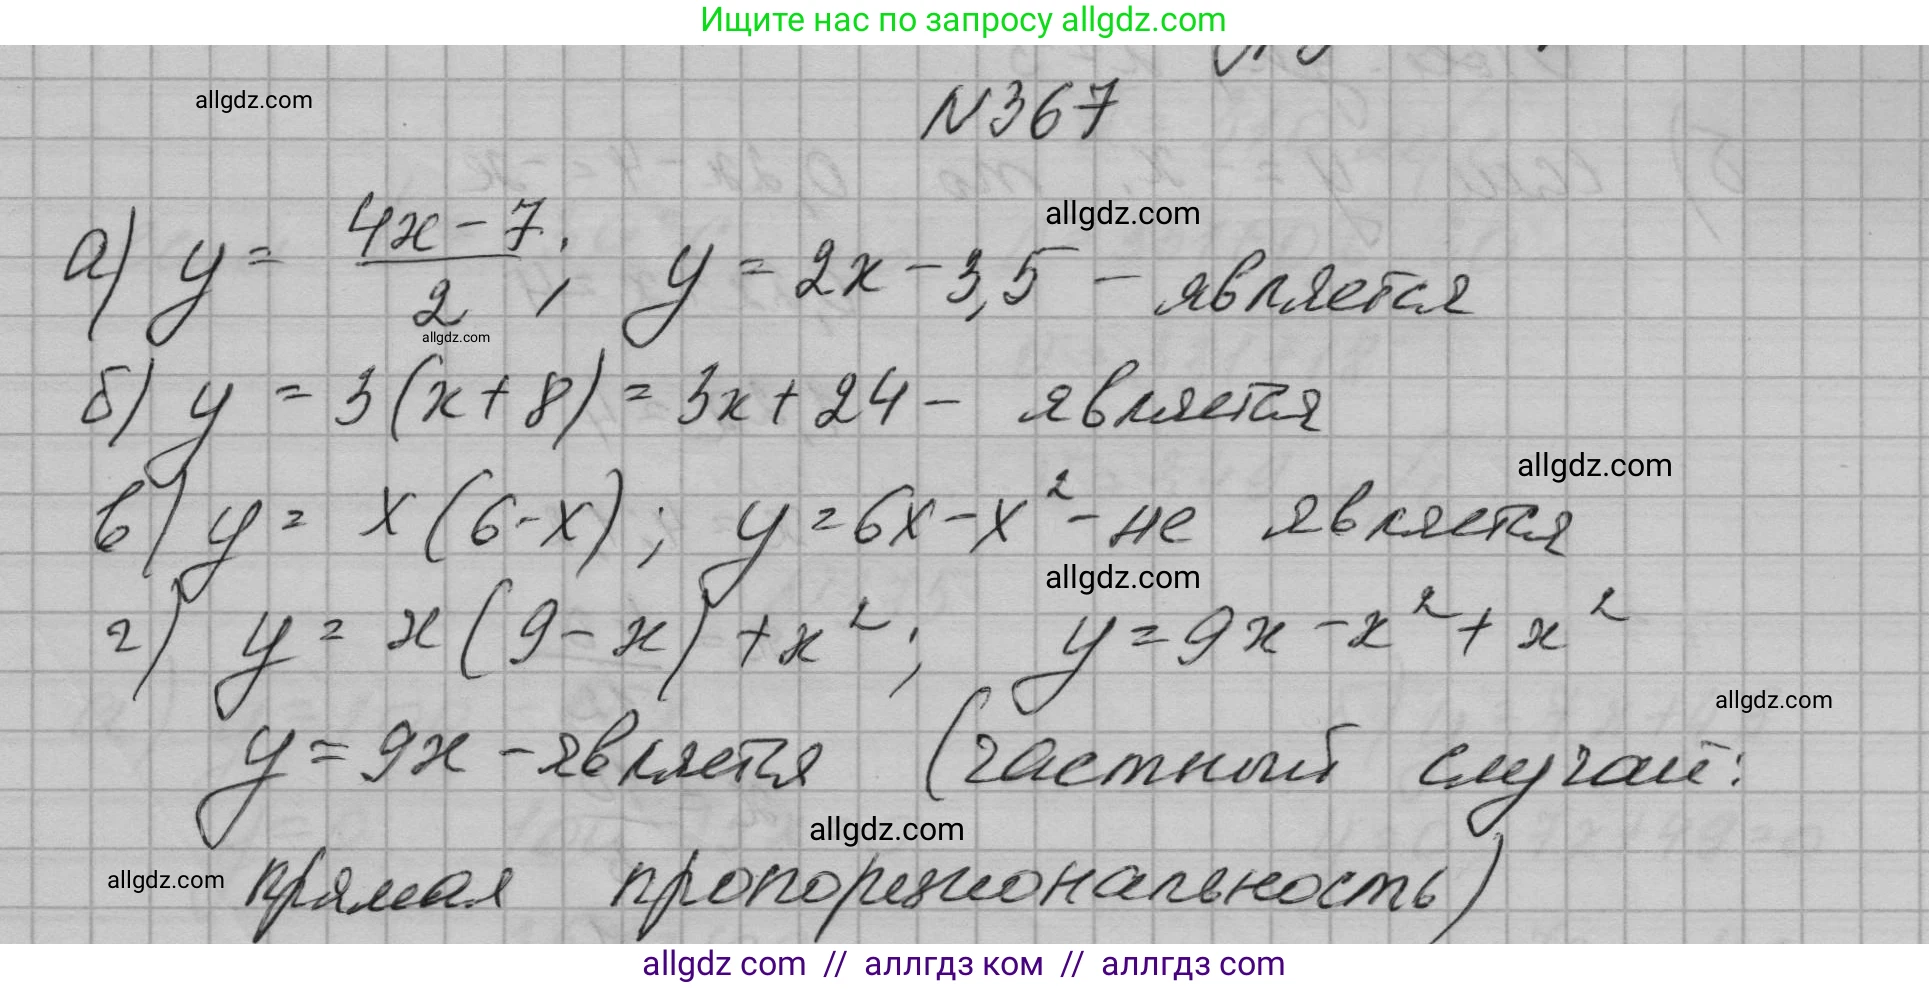 Ищите нас по запросу allgdz.com
N367
allgdz.com
а) y = 4x - 7 / 2 ; y = 2x - 3,5 - является
allgdz.com
allgdz.com
б) y = 3(x + 8) = 3x + 24 - является
allgdz.com
в) y = x(6 - x); y = 6x - x² - не является
allgdz.com
г) y = x(9 - x) + x²; y = 9x - x² + x²
allgdz.com
y = 9x - является (частный случай:
allgdz.com
allgdz.com
прямая пропорциональность)
allgdz com // аллгдз ком // аллгдз com